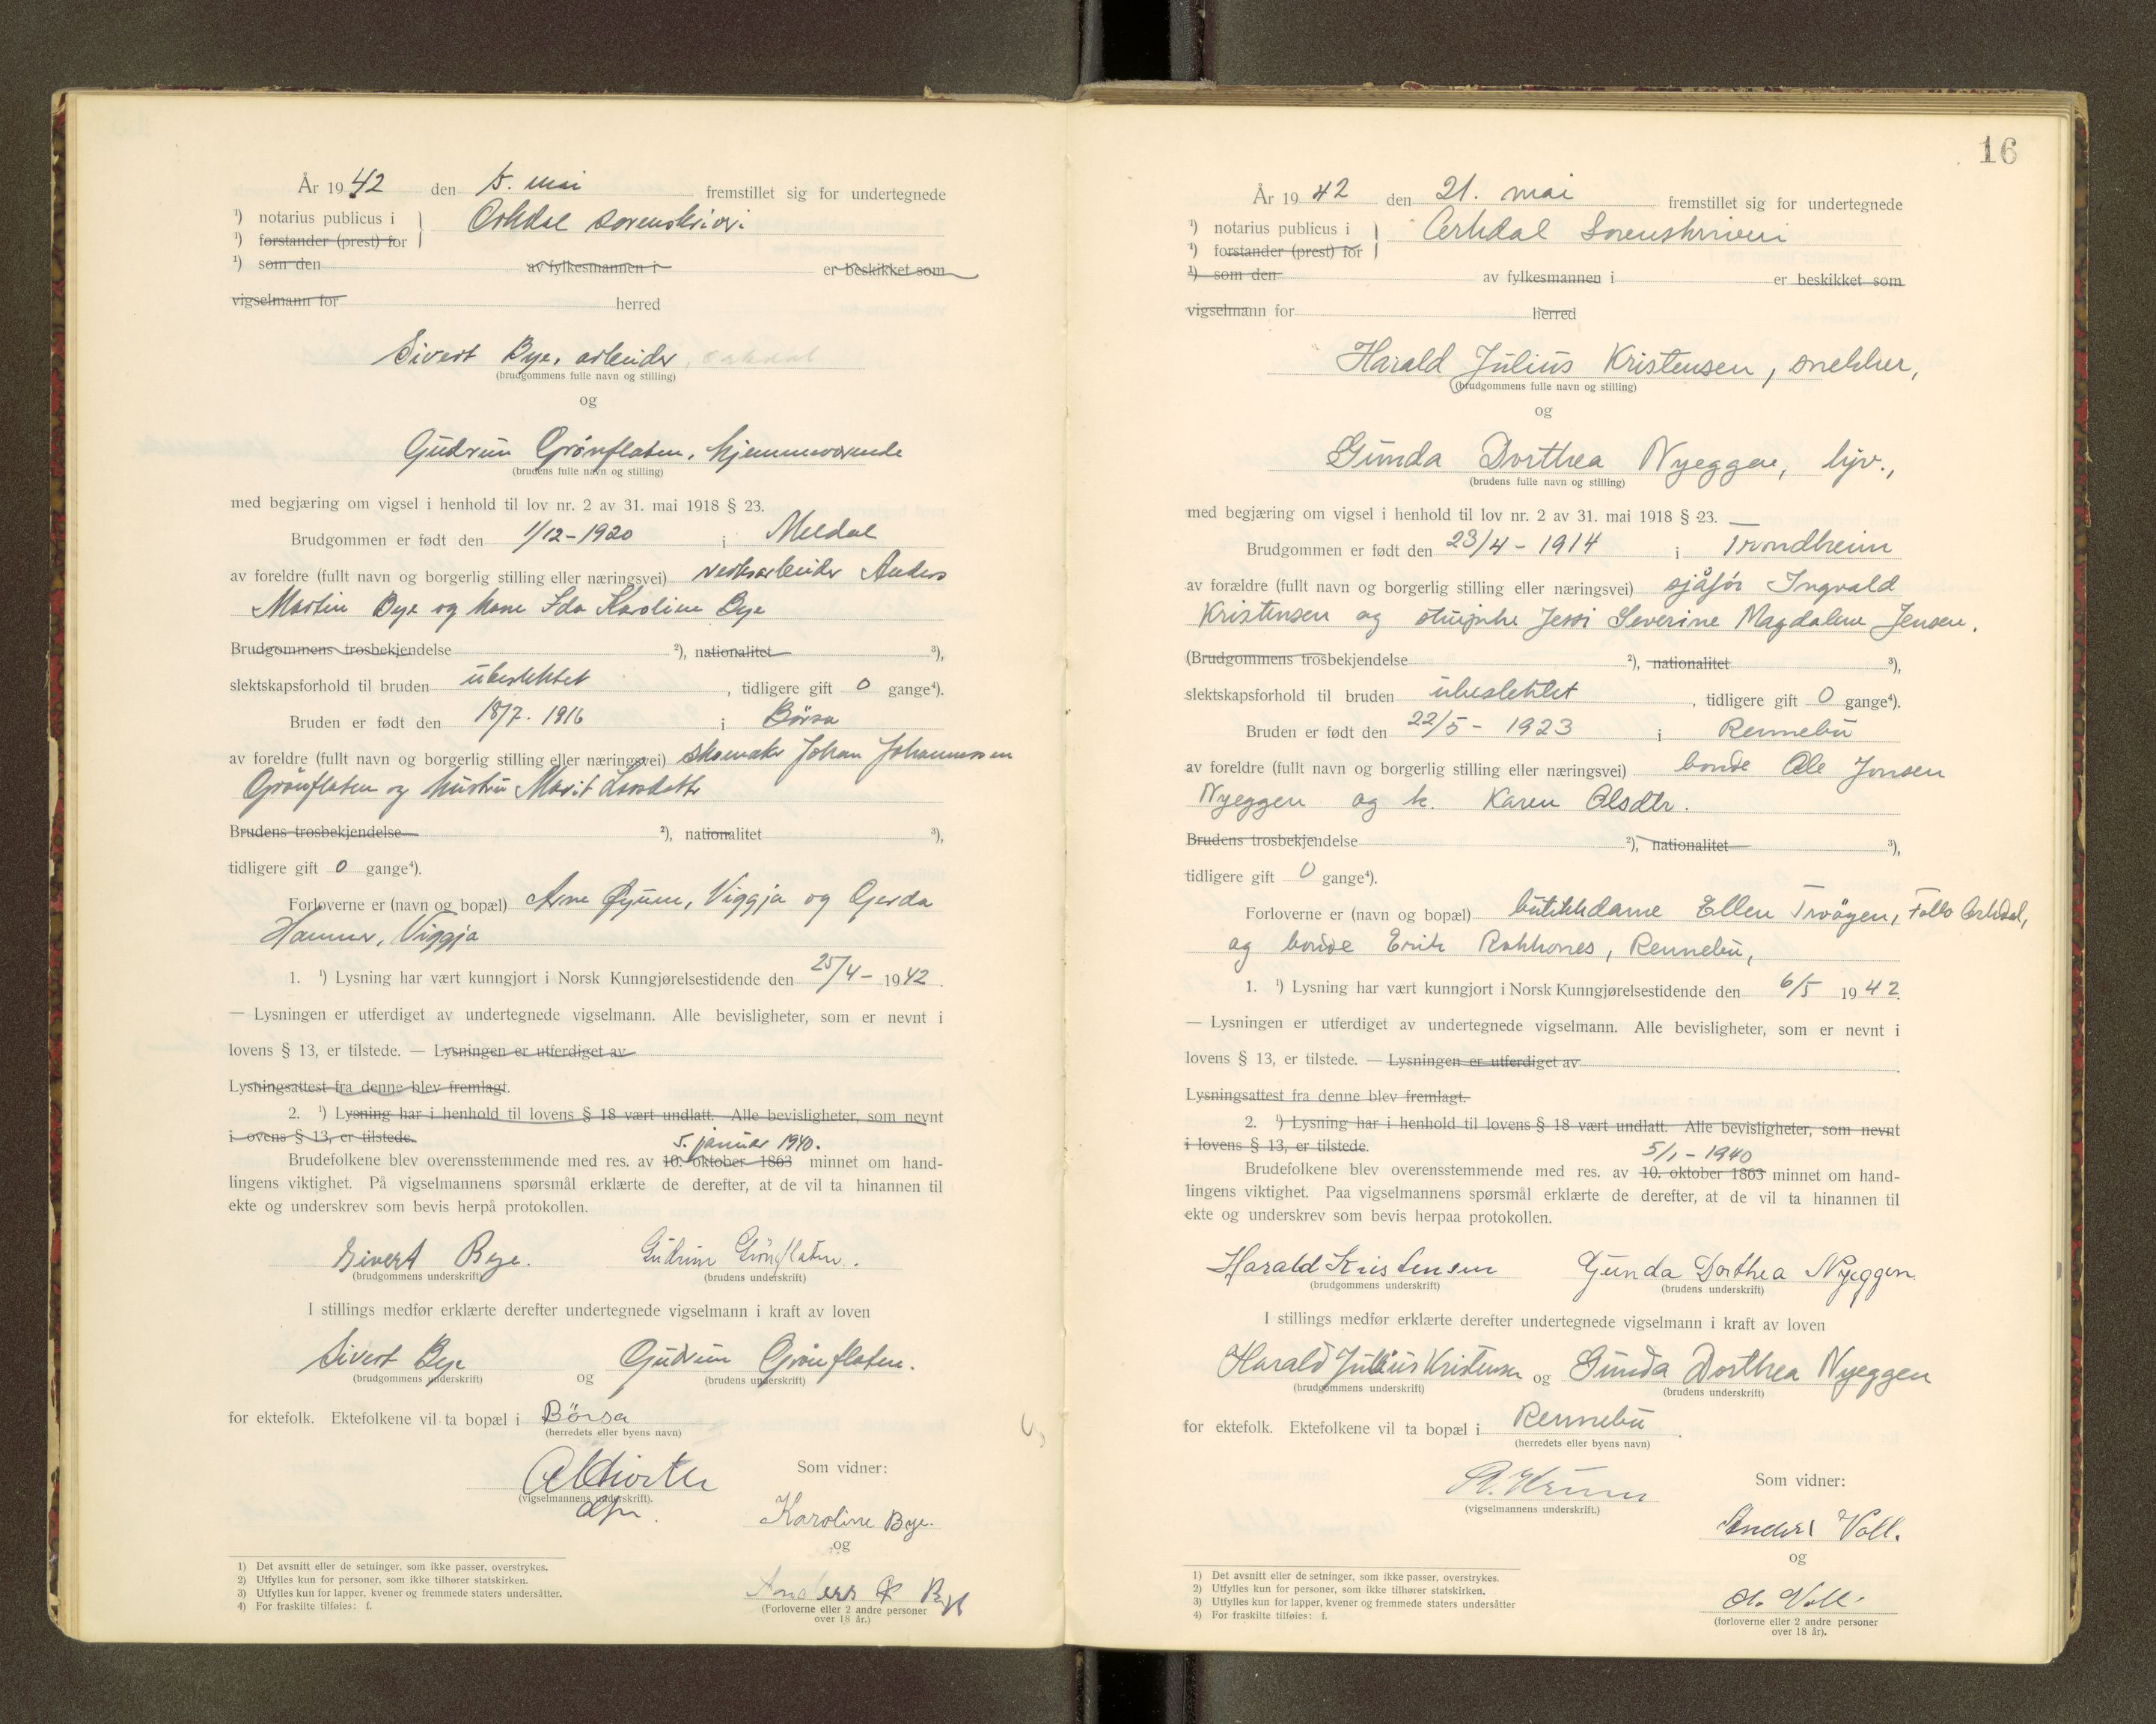 År 1942 den 5. mai fremstillet sig for undertegnede
¹) notarius publicus i } Orkdal sorenskriveri
¹) forstander (prest) for
¹) som den av fylkesmannen i er beskikket som
vigselmann for herred
Sivert Bye, arbeider, Orkdal
(brudgommens fulle navn og stilling)
og
Gudrun Grönflaten, hjemmeværende
(brudens fulle navn og stilling)
med begjæring om vigsel i henhold til lov nr. 2 av 31. mai 1918 § 23.
Brudgommen er født den 1/12-1920 i Meldal
av foreldre (fullt navn og borgerlig stilling eller næringsvei) verksarbeider Anders
Martin Bye og kone Ida Karoline Bye
Brudgommens trosbekjendelse ²), nationalitet ³),
slektskapsforhold til bruden ubeslektet, tidligere gift 0 gange⁴).
Bruden er født den 18/7-1916 i Börsa
av foreldre (fullt navn og borgerlig stilling eller næringsvei) skomaker Johan Johannessen
Grönflaten og hustru Marit Larsdatter
Brudens trosbekjendelse ²), nationalitet ³),
tidligere gift 0 gange⁴).
Forloverne er (navn og bopæl) Arne Øyum, Viggja og Gerda
Hammer, Viggja
1. ¹) Lysning har vært kunngjort i Norsk Kunngjørelsestidende den 25/4- 1942.
— Lysningen er utferdiget av undertegnede vigselmann. Alle bevisligheter, som er nevnt i
lovens § 13, er tilstede. — Lysningen er utferdiget av
Lysningsattest fra denne blev fremlagt.
2. ¹) Lysning har i henhold til lovens § 18 vært undlatt. Alle bevisligheter, som nevnt
i ovens § 13, er tilstede.
5. januar 1940.
Brudefolkene blev overensstemmende med res. av 10. oktober 1863 minnet om hand-
lingens viktighet. På vigselmannens spørsmål erklærte de derefter, at de vil ta hinannen til
ekte og underskrev som bevis herpå protokollen.
Sivert Bye. Gudrun Grönflaten.
(brudgommens underskrift) (brudens underskrift)
I stillings medfør erklærte derefter undertegnede vigselmann i kraft av loven
Sivert Bye og Gudrun Grönflaten.
(brudgommens underskrift) (brudens underskrift)
for ektefolk. Ektefolkene vil ta bopæl i Börsa
(herredets eller byens navn)
Som vidner:
(vigselmannens underskrift).
Karoline Bye.
og
Anders Bye
(Forloverne eller 2 andre personer
over 18 år.)
1) Det avsnitt eller de setninger, som ikke passer, overstrykes.
2) Utfylles kun for personer, som ikke tilhører statskirken.
3) Utfylles kun for lapper, kvener og fremmede staters undersåtter.
4) For fraskilte tilføies: f.
16
År 1942 den 21. mai fremstillet sig for undertegnede
¹) notarius publicus i } Orkdal Sorenskriveri
¹) forstander (prest) for
¹) som den av fylkesmannen i er beskikket som
vigselmann for herred
Harald Julius Kristensen, snekker,
(brudgommens fulle navn og stilling)
og
Gunda Dorthea Nyeggen, hjv.,
(brudens fulle navn og stilling)
med begjæring om vigsel i henhold til lov nr. 2 av 31. mai 1918 § 23.
Brudgommen er født den 23/4-1914 i Trondheim
av forældre (fullt navn og borgerlig stilling eller næringsvei) sjåfør Ingvald
Kristensen og Jessi Severine Magdalene Jensen.
(Brudgommens trosbekjendelse ²), nationalitet ³),
slektskapsforhold til bruden ubeslektet, tidligere gift 0 gange⁴).
Bruden er født den 22/5-1923 i Rennebu
av foreldre (fullt navn og borgerlig stilling eller næringsvei) bonde Ole Jonsen
Nyeggen og h. Karen Olsdtr.
Brudens trosbekjendelse ²), nationalitet ³),
tidligere gift 0 gange⁴).
Forloverne er (navn og bopæl) butikkdame Ellen Trøögen, Follo Orkdal,
og bonde Erik Rokkones, Rennebu,
1. ¹) Lysning har vært kunngjort i Norsk Kunngjørelsestidende den 6/5 1942.
— Lysningen er utferdiget av undertegnede vigselmann. Alle bevisligheter, som er nevnt i
lovens § 13, er tilstede. — Lysningen er utferdiget av
Lysningsattest fra denne blev fremlagt.
2. ¹) Lysning har i henhold til lovens § 18 vært undlatt. Alle bevisligheter, som nevnt
i lovens § 13, er tilstede.
5/1-1940
Brudefolkene blev overensstemmende med res. av 10. oktober 1863 minnet om hand-
lingens viktighet. Paa vigselmannens spørsmål erklærte de derefter, at de vil ta hinannen til
ekte og underskrev som bevis herpaa protokollen.
Harald Kristensen Gunda Dorthea Nyeggen.
(brudgommens underskrift) (brudens underskrift)
I stillings medfør erklærte derefter undertegnede vigselmann i kraft av loven
Harald Julius Kristensen og Gunda Dorthea Nyeggen
(brudgommens underskrift) (brudens underskrift)
for ektefolk. Ektefolkene vil ta bopæl i Rennebu.
(herredets eller byens navn)
Som vidner:
(vigselmannens underskrift.)
Anders Voll.
og
O. Voll.
(forloverne eller 2 andre personer
over 18 år).
1) Det avsnitt eller de setninger, som ikke passer, overstrykes.
2) Utfylles kun for personer, som ikke tilhører statskirken.
3) Utfylles kun for lapper, kvener og fremmede staters undersåtter
4) For fraskilte tilføies: f.